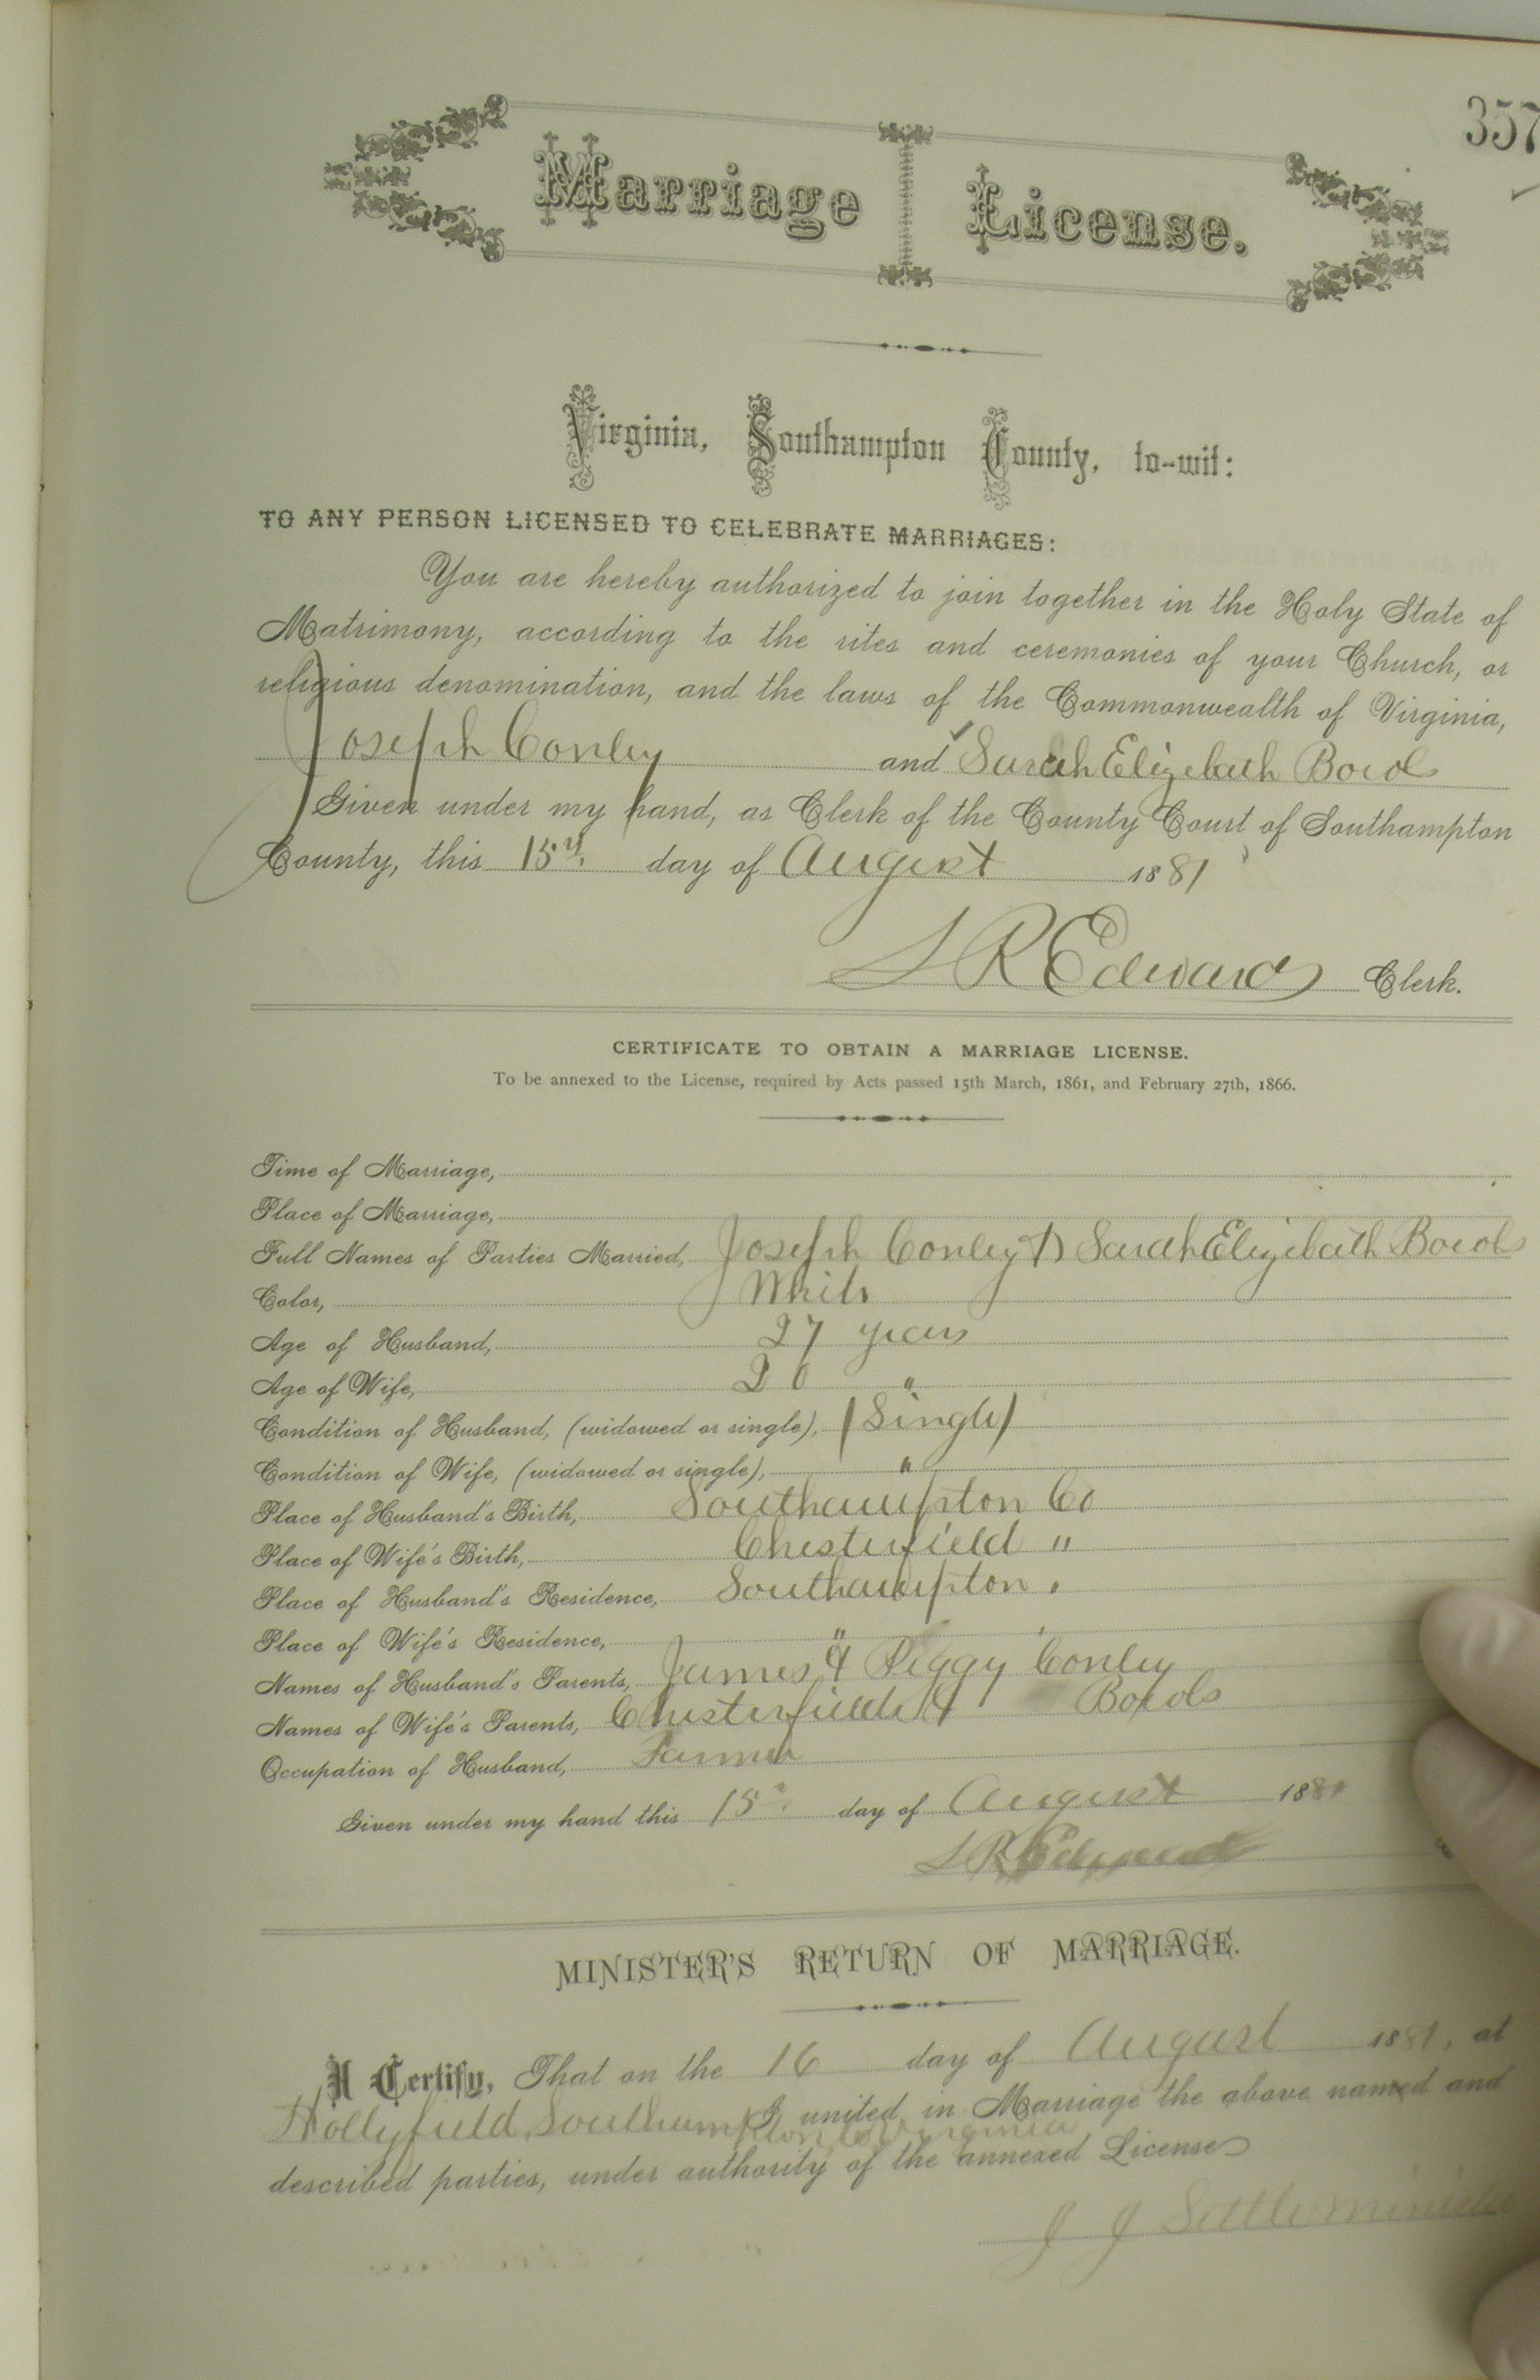 357
Marriage License.
Virginia, Southampton County, to-wit:
TO ANY PERSON LICENSED TO CELEBRATE MARRIAGES:
You are hereby authorized to join together in the Holy State of
Matrimony, according to the rites and ceremonies of your Church, or
religious denomination, and the laws of the Commonwealth of Virginia,
Joseph Conley and Sarah Elizebath
Given under my hand, as Clerk of the County Court of Southampton
County, this 15th day of August 1881
L R Edwards Clerk.
CERTIFICATE TO OBTAIN A MARRIAGE LICENSE.
To be annexed to the License, required by Acts passed 15th March, 1861, and February 27th, 1866.
Time of Marriage,
Place of Marriage,
Full Names of Parties Married, Joseph Conley & Sarah Elizebath
Color, White
Age of Husband, 27 years
Age of Wife, 20 "
Condition of Husband, (widowed or single), (Single)
Condition of Wife, (widowed or single), "
Place of Husband's Birth, Southampton Co
Place of Wife's Birth, Chesterfield "
Place of Husband's Residence, Southampton "
Place of Wife's Residence, "
Names of Husband's Parents, James & Peggy Conley
Names of Wife's Parents, Chesterfield &
Occupation of Husband, Farmer
Given under my hand this 15th day of August 1881
L R Edwards
MINISTER'S RETURN OF MARRIAGE.
I Certify, That on the 16 day of August 1881, at
Hollyfield, Southampton Co Virginia I united in Marriage the above named and
described parties, under authority of the annexed License
J J Settle Minister